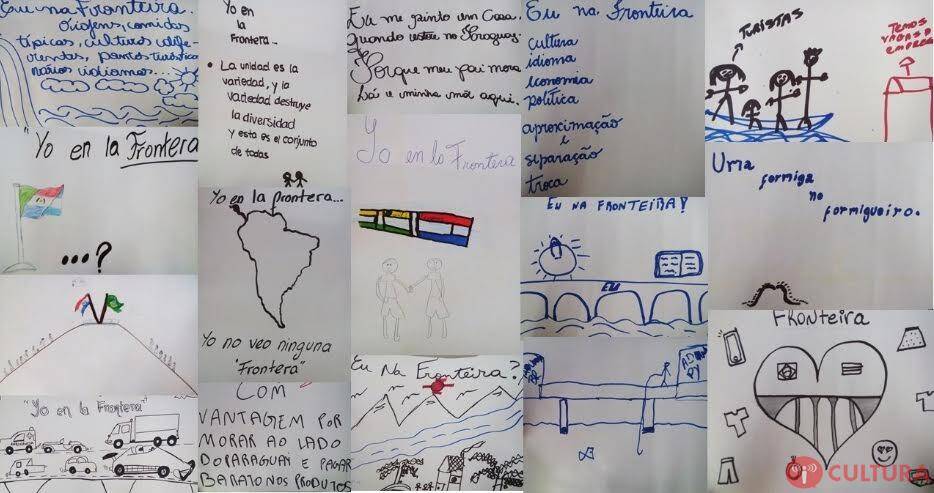 Eu na Fronteira.
Origens, comidas
típicas, culturas dife-
rentes, pontos turísticos
vários idiomas...
Yo en la Frontera
...?
"Yo en la Frontera"
Yo en
la
Frontera...
• La unidad es la
variedad, y la
variedad destruye
la diversidad
y esta es el conjunto
de todas
Yo en la frontera...
Yo no veo ninguna
"Frontera"
COM
VANTAGEM POR
MORAR AO LADO
DO PARAGUAI E PAGAR
BARATO NOS PRODUTOS
Eu me sinto em Casa.
Quando estou no Paraguay.
Porque meu pai mora
lá e minha mãe aqui.
Yo en la Frontera
Eu Na Fronteira?
Eu na Fronteira
cultura
idioma
economia
política
aproximação
e
separação
troca
EU NA FRONTEIRA!
EU
TURISTAS
TEMOS
VAGAS D
EMPREGO
Uma
formiga
no
formigueiro.
FRONTEIRA
CULTURA